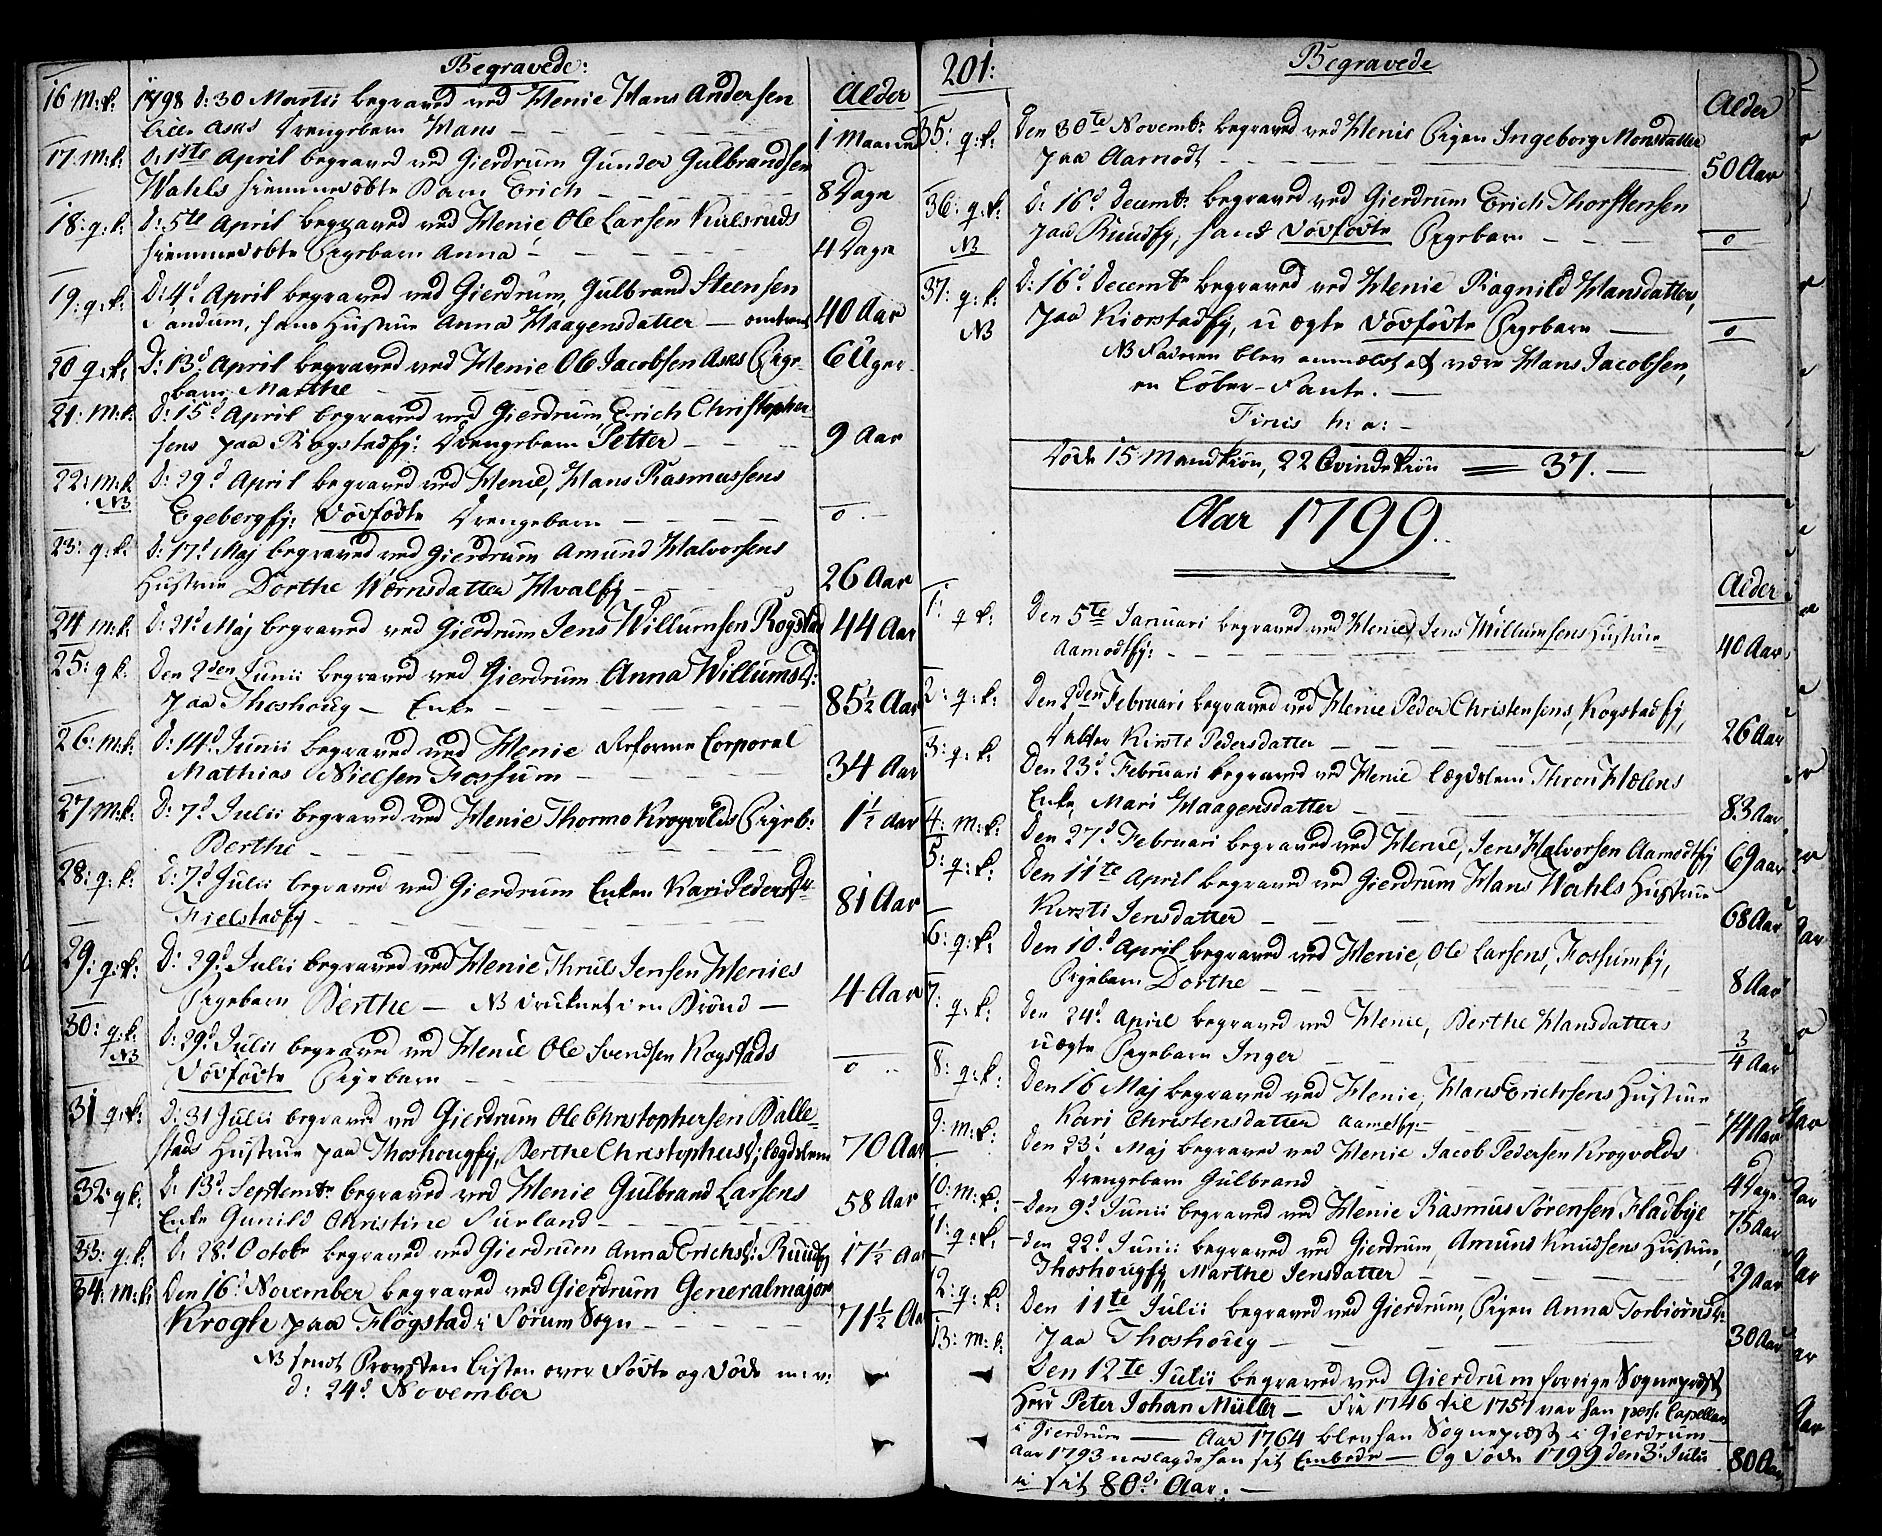 Begravede:
Alder
16 M:k: 1798 d: 30 Martii begraved ved Henie Hans Andersen
Lille Asks Drengebarn Hans — 1 Maaned
17: M:k: d: 1ste April begraved ved Gierdrum Gunder Gulbrandsen
Wahls hiemmedøbte Barn Erich — 8 Dage
18: q:k: d: 5te April begraved ved Henie Ole Larsen Kulsruds
hiemmedøbte Pigebarn Anna — 4 Dage
19: q:k: d: 4d April begraved ved Gierdrum, Gulbrand Steensen
Sandum, hans Hustrue Anna Haagensdatter — omtrent 40 Aar
20 q:k: d: 13d April begraved ved Henie Ole Jacobsen Asks Pige-
barn Marthe — 6 Uger
21: M:k: d: 15d April begraved ved Gierdrum Erich Christopher-
sens paa Rogstadfj: Drengebarn Petter — 9 Aar
22: M:k. d: 29d April begraved ved Henie, Hans Rasmussens
NB Egebergfj: dødfødte Drengebarn — o —
23: q:k: d: 17d Maj begraved ved Gierdrum Amund Halvorsens
Hustrue Dorthe Hærnsdatter Hvalfj — 26 Aar
24 m:k: d: 21d Maj begraved ved Gierdrum Jens Willumsen Rogstad 44 Aar
25: q k: den 2den Junii begraved ved Gierdrum Anna Willumsd:
paa Thoshoug — Enke — 85½ Aar
26: m:k: d: 14d Junii begraved ved Henie Reforme Corporal
Mathias Nielsen Fossum — 34 Aar
27 m:k: d: 7d Julii begraved ved Henie Thormo Krogvolds Pigeb:
Berthe — 1½ aar
28: q:k: d: 7d Julii begraved ved Gierdrum Enken Kari Pedersdr
Fielstadfj — 81 Aar
29: q:k: d: 29d Julii begraved ved Henie Thruls Jensen Henies
Pigebarn Berthe — NB druknet i en Brønd — 4 Aar
30: q:k: d: 29d Julii begraved ved Henie Ole Svendsen Kogstads
NB dødfødte Pigebarn — o —
31 q:k: d: 31 Julii begraved ved Gierdrum Ole Christophersen Balle-
stads Hustrue paa Thoshougfj, Berthe Christophersd; lægdslem 70 Aar
32: q k: d: 13d Septembr begraved ved Henie Gulbrand Larsens
Enke Gunild Christine Furland — 58 Aar
33: q:k: d: 28d Octobr begraved ved Gierdrum Anna Erichsd: Ruudfj 17½ Aar
34: M:k: Den 16d November begraved ved Gierdrum Generalmajor
Krogh paa Flogstad i Sørum Sogn — 71½ Aar
NB sendt Provsten Listen over Fødte og Døde m: v:
d: 24d November
201:
Begravede
Alder
35: q:k: Den 30te Novembr begraved ved Henie Pigen Ingeborg Monsdatter
paa Aamodt — 50 Aar
36: q:k: d: 16d Decembr begraved ved Gierdrum Erich Thorstensen
NB paa Ruudfj, hans dødfødte Pigebarn — o
37: q:k: d: 16d Decembr begraved ved Henie Ragnild Hansdatter,
NB paa Kiorstadfj, u ægte dødfødte Pigebarn — o
NB Faderen blev anmeldt at være Hans Jacobsen,
en Løber-Fante. —
Finis h: a: —
Døde 15 Mandkiøn, 22 Qvindekiøn = 37. —
Aar 1799.
Alder
1: q k: Den 5te Januari begraved ved Henie, Jens Willumsens Hustrue
Aamodtfj: — 40 Aar
2: q:k: Den 2den Februari begraved ved Henie Peder Christensens, Kogstadfj,
datter Kirste Pedersdatter — 26 Aar
3: q:k: Den 23d Februari begraved ved Henie lægdslem Thron Holens
Enke, Mari Haagensdatter — 83 Aar
4: m:k: Den 27d Februari begraved ved Henie, Jens Halvorsen Aamodtfj 69 aar
5: q:k: Den 11te April begraved ved Gierdrum Hans Wahls Hustrue
Kirsti Jensdatter — 68 Aar
6: q:k: Den 10d April begraved ved Henie, Ole Larsens, Fossumfj,
Pigebarn Dorthe — 8 Aar
7: q:k: Den 24d April begraved ved Henie, Berthe Hansdatters
uægte Pigebarn Inger — 3/4 Aar
8: q:k: Den 16 Maj begraved ved Henie, Hans Erichsens Hustrue
Kari Christensdatter Aamotfj — 74 Aar
9: m:k: Den 23d Maj begraved ved Henie Jacob Pedersen Krogvolds
Drengebarn Gulbrand — 4 Dage
10: m:k: Den 9d Junii begraved ved Henie Rasmus Sørensen Fladbye 75 Aar
11: q:k: Den 22d Junii begraved ved Gierdrum, Amund Knudsens Hustrue,
Thoshougfj, Marthe Jensdatter — 29 Aar
12: q:k: Den 11te Julii begraved ved Gierdrum, Pigen Anna Torbiørnsdr
paa Thoshoug — 30 Aar
13: m:k: Den 12te Julii begraved ved Gierdrum forrige Sognepræst
Herr Peter Johan Müller — Fra 1746 til 1757 var han pers: Capellan
i Gierdrum — Aar 1764 blev han Sognepræst i Gierdrum —
Aar 1793 nedlagde han sit Embede — Og døde 1799 den 3d Julii
i sit 80d Aar. — 80 Aar